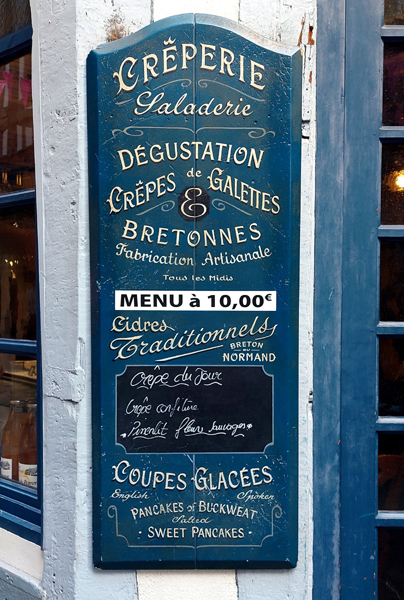 CRÊPERIE
Saladerie
DÉGUSTATION
de
CRÊPES & GALETTES
BRETONNES
Fabrication Artisanale
Tous les Midis
MENU à 10,00€
Cidres
Traditionnels
BRETON
ou
NORMAND
Crêpe du Jour
Crêpe confiture
COUPES GLACÉES
English Spoken
PANCAKES of BUCKWEAT
Salted
· SWEET PANCAKES ·